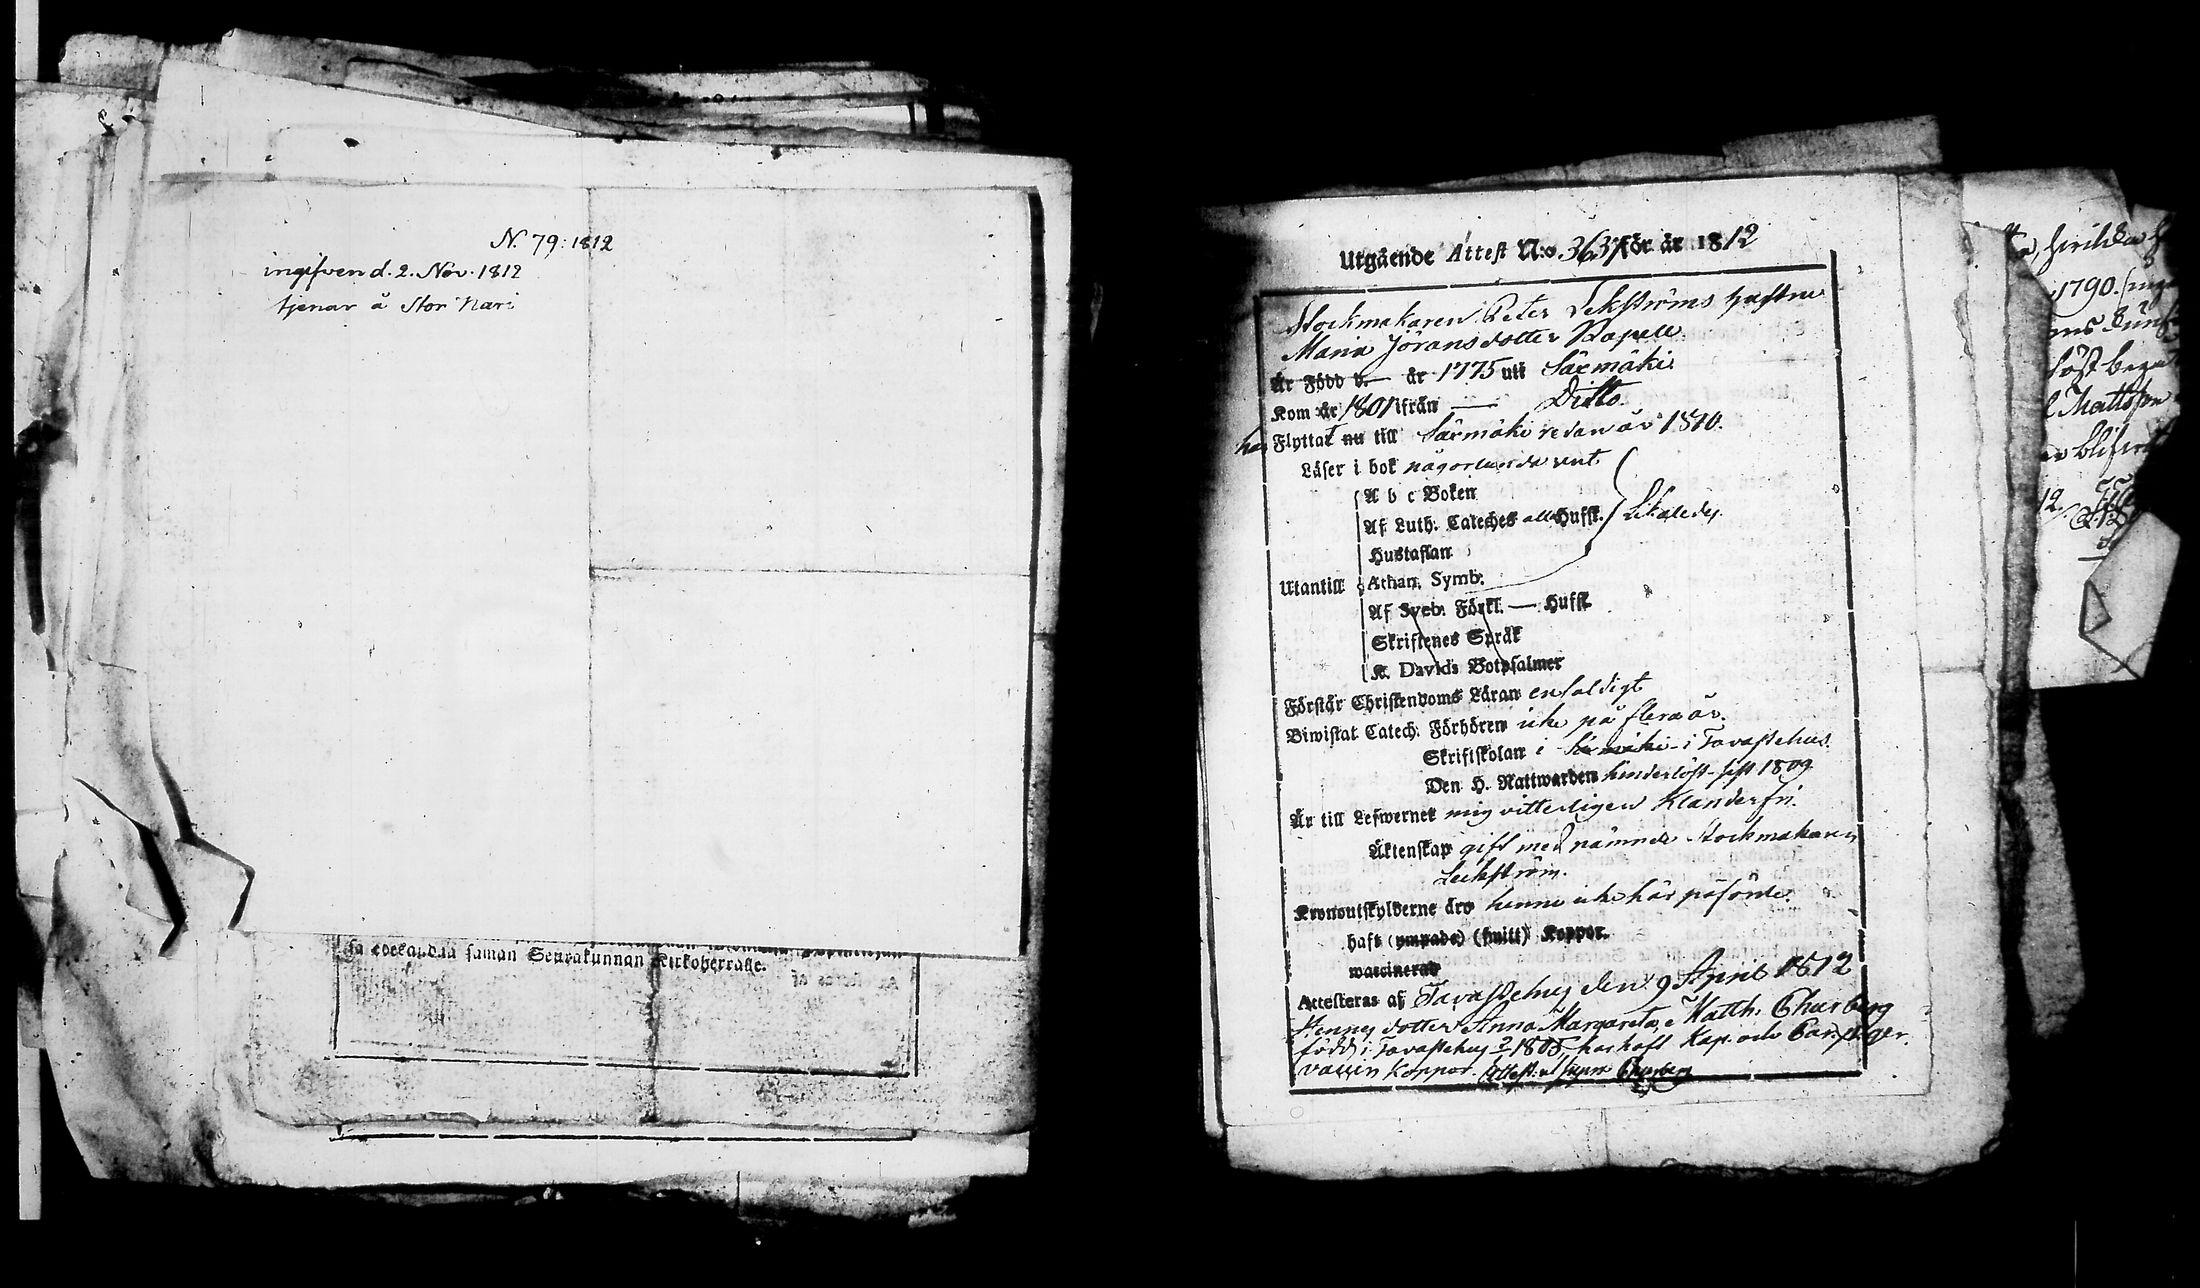 N. 79: 1812
ingifven d. 2. Nov. 1812
tjenar å Stor Nari
sa coccandaa saman Seurakunnan Kirkoherralle.
Utgående Attest N:o 363 för år 1812
Stockmakaren Peter Lekströms hustru
Maria Jöransdotter
År Född d. — år 1775 uti Säxmäki
Kom år 1801 ifrån — Ditto.
har Flyttat nu till Säxmäki redan år 1810.
Läser i bok någorlunda rent
A b c Boken
Af Luth. Cateches alla Hufst.
Hustaflan
Utantill Athan. Symb.
Af Sveb. Förkl. — Hufst.
Skriftenes Språk
K. Davids Botpsalmer
Förstår Christendoms Läran enfaldigt
Biwistat Catech. Förhören icke på flera år.
Skriftskolan i Säxmäki - i Tavastehus.
Den H. Nattwarden hinderlöst sist 1809
Är till Lefwernet mig vitterligen klanderfri.
Äktenskap gift med nämnde Stockmakaren
Leckström.
Kronoutskylderne äro henne icke här påförde.
haft (ympade) (smitt) Koppor.
waccinerad
Attesteras af Tavastehus den 9 April 1812
Hennes dotter Anna Margareta, Matth. Churberg
född i Tavastehus 1805, har haft Kap. och
vaccin koppor. Attest. Churberg
1790.
Mattsson
12.